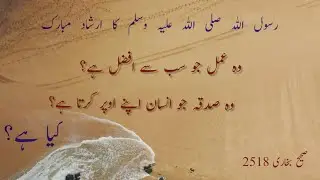 رسولی اللہ صلی اللہ علیہ وسلم کا ارشاد مبارک
وہ عمل جو سب سے افضل ہے؟
وہ صدقہ جو انسان اپنے اوپر کرتا ہے؟
کیا ہے؟
صحیح بخاری 2518